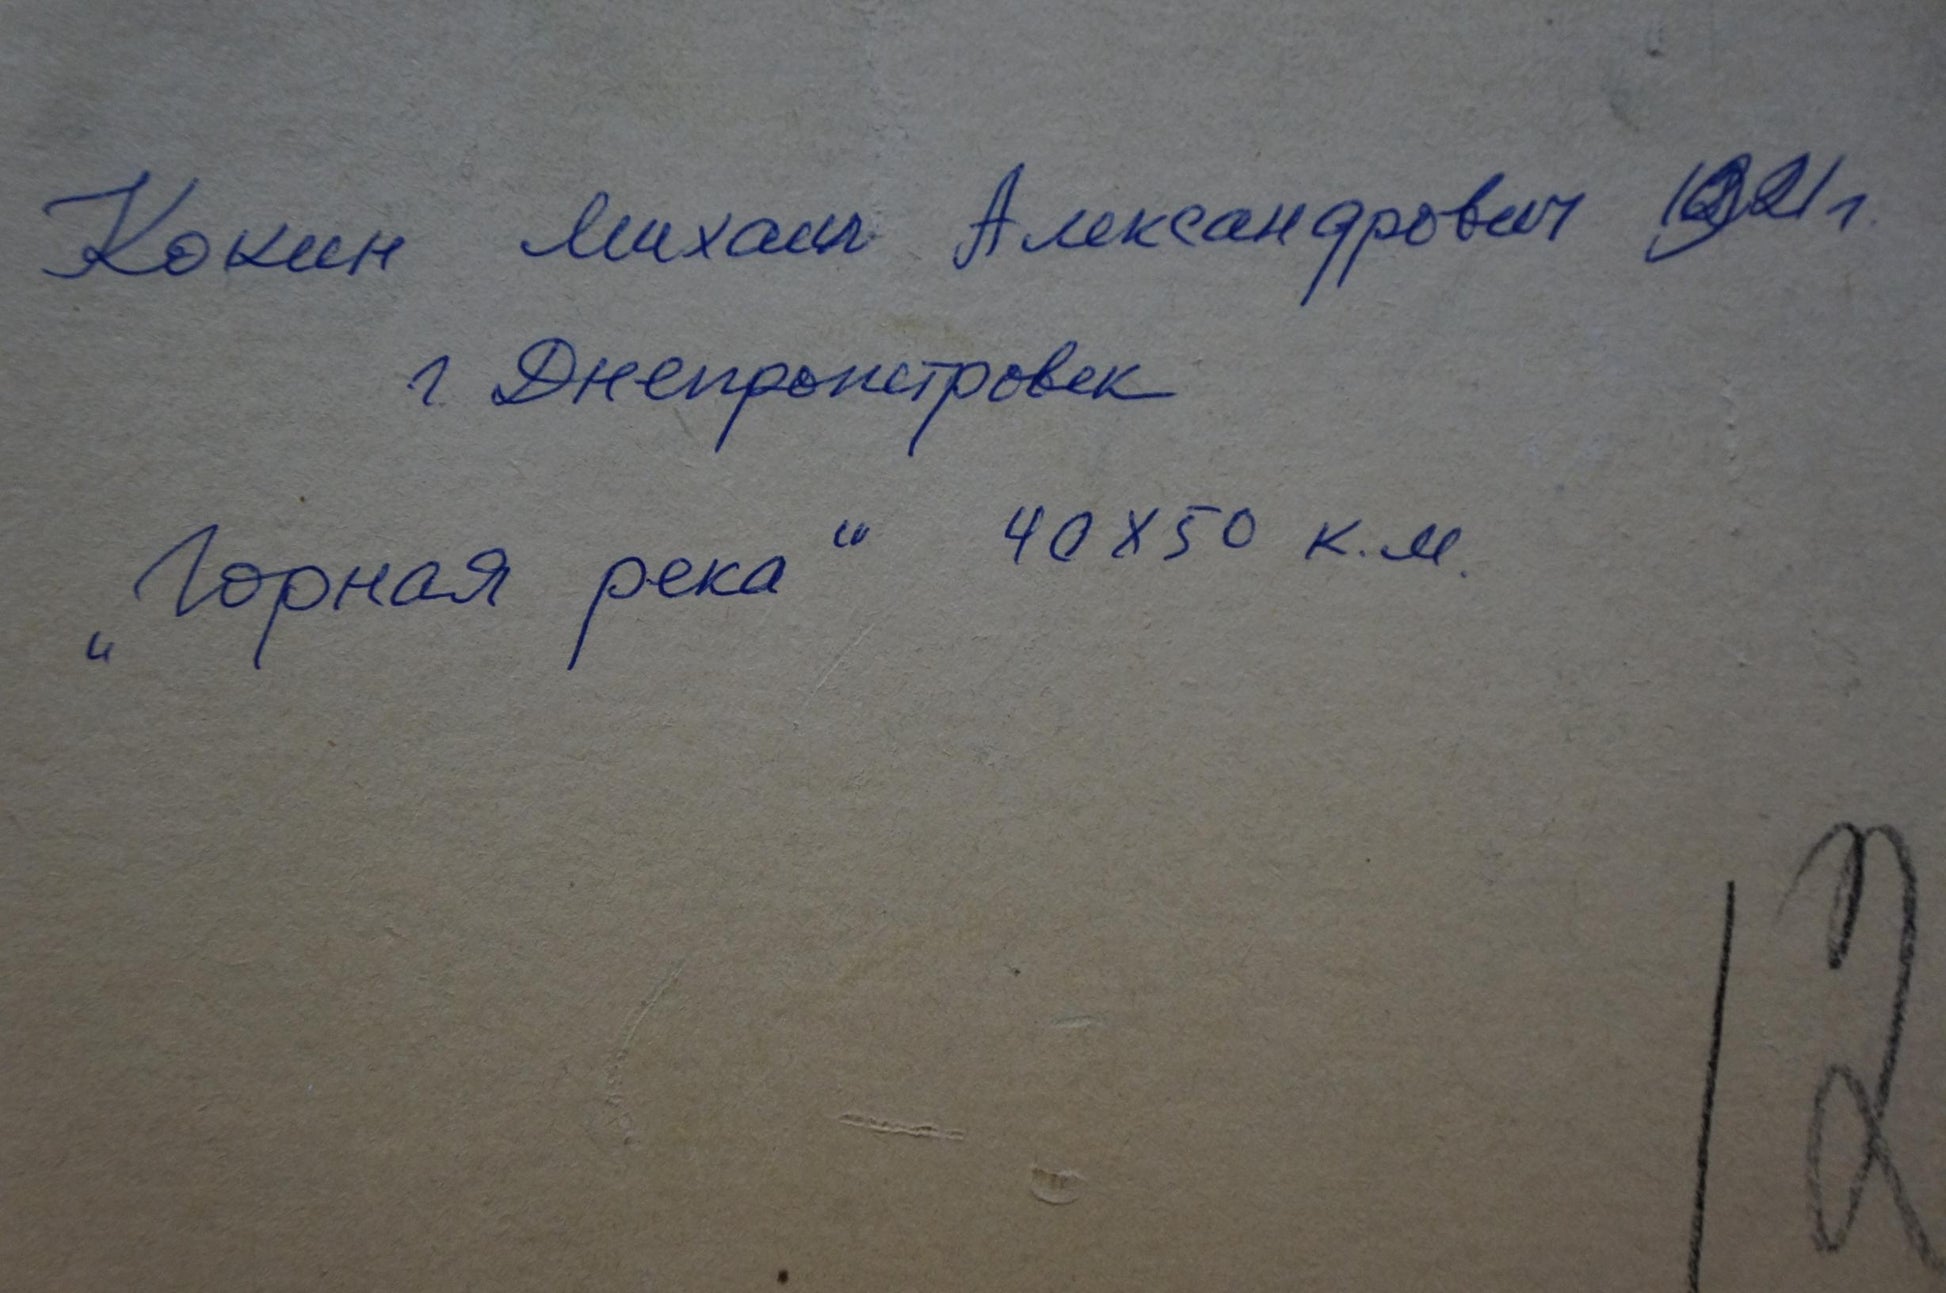 Кокин Михаил Александрович 1921г.
г. Днепропетровск
„Горная река“ 40х50 к.м.
12